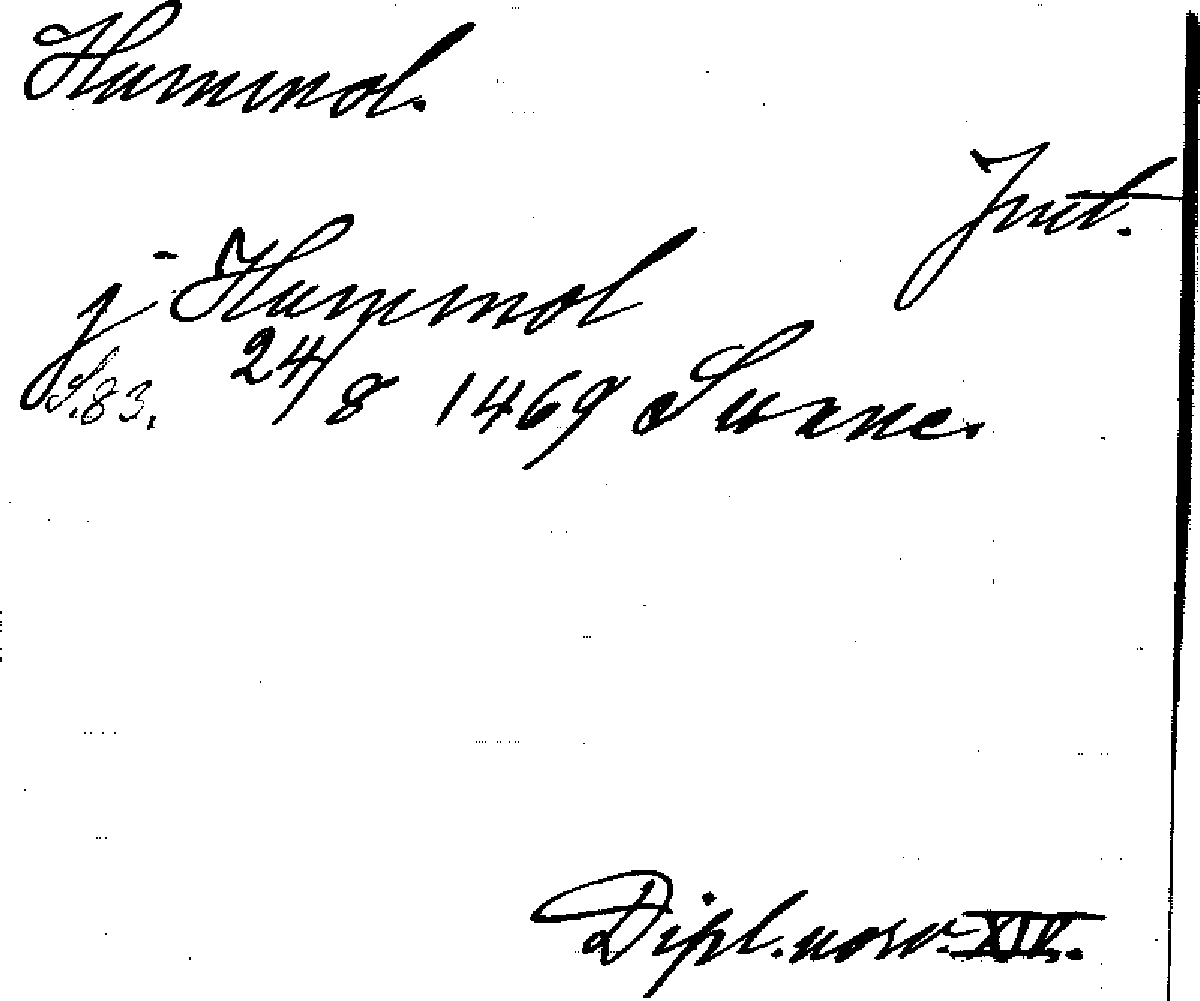 Hammol.
Jmt.
j Hammol
S.83. 24/8 1469 Sunne.
Dipl. norv. XIV.